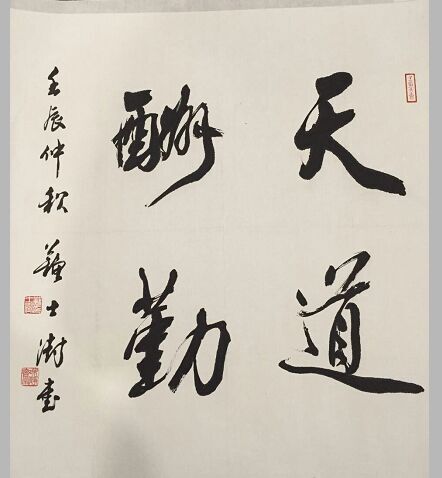 天道
酬勤
壬辰仲秋 苏士澍书